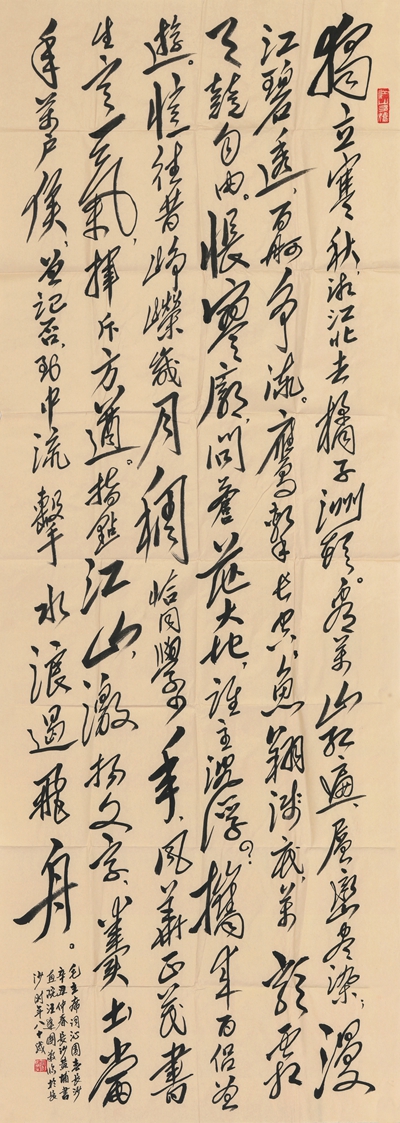 獨立寒秋,湘江北去,橘子洲頭。看萬山紅遍,層巒盡染;漫
江碧透,百舸争流。鷹擊長空,魚翔淺底,萬類霜
天競自由。悵寥廓,問蒼茫大地,誰主沉浮?攜來百侣曾
遊。憶往昔崢嶸歲月稠恰同學少年,風華正茂書
生意氣,揮斥方遒。指點江山,激揚文字,糞土當
年萬户侯,曾記否,到中流擊水浪遏飛舟。
毛主席詞沁園春長沙
辛丑仲春長沙書
画院國於長
沙时年八十歲